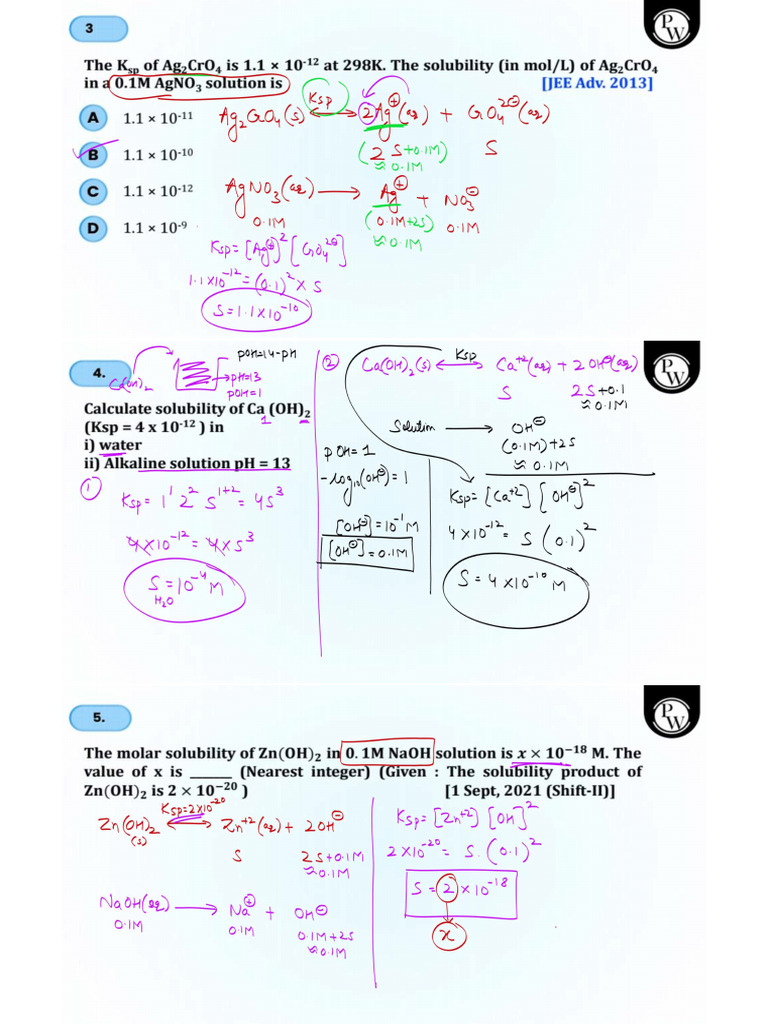 3
PW
The Ksp of Ag₂CrO₄ is 1.1 × 10⁻¹² at 298K. The solubility (in mol/L) of Ag₂CrO₄
in a 0.1M AgNO₃ solution is [JEE Adv. 2013]
A 1.1 × 10⁻¹¹
B 1.1 × 10⁻¹⁰
C 1.1 × 10⁻¹²
D 1.1 × 10⁻⁹
Ksp
Ag₂CrO₄(s) ⟷ 2Ag⊕(aq) + CrO₄²⊖(aq)
(2S+0.1M) S
≈0.1M
AgNO₃(aq) ⟶ Ag⊕ + NO₃⊖
0.1M (0.1M+2S) 0.1M
≈0.1M
Ksp = [Ag⊕]² [CrO₄²⊖]
1.1×10⁻¹² = (0.1)² × S
S = 1.1×10⁻¹⁰
4.
PW
Ca(OH)₂
pOH=14-pH
pH=13
pOH=1
Calculate solubility of Ca (OH)₂
(Ksp = 4 x 10⁻¹² ) in
1
i) water
ii) Alkaline solution pH = 13
①
Ksp = 1¹ 2² S¹⁺² = 4S³
4×10⁻¹² = 4×S³
S = 10⁻⁴ M
H₂O
②
Ksp
Ca(OH)₂(s) ⟷ Ca⁺²(aq) + 2OH⊖(aq)
S 2S+0.1
≈0.1M
Solution ⟶ OH⊖
(0.1M)+2S
≈0.1M
pOH = 1
-log₁₀(OH⊖) = 1
[OH⊖] = 10⁻¹ M
[OH⊖] = 0.1M
Ksp = [Ca⁺²] [OH⊖]²
4×10⁻¹² = S (0.1)²
S = 4×10⁻¹⁰ M
5.
PW
The molar solubility of Zn(OH)₂ in 0. 1M NaOH solution is x × 10⁻¹⁸ M. The
value of x is _____ (Nearest integer) (Given : The solubility product of
Zn(OH)₂ is 2 × 10⁻²⁰ ) [1 Sept, 2021 (Shift-II)]
Ksp=2×10⁻²⁰
Zn(OH)₂ ⟷ Zn⁺²(aq) + 2OH⊖
(s)
S 2S+0.1M
≈0.1M
NaOH(aq) ⟶ Na⊕ + OH⊖
0.1M 0.1M 0.1M+2S
≈0.1M
Ksp = [Zn⁺²] [OH]²
2×10⁻²⁰ = S.(0.1)²
S = 2 ×10⁻¹⁸
x